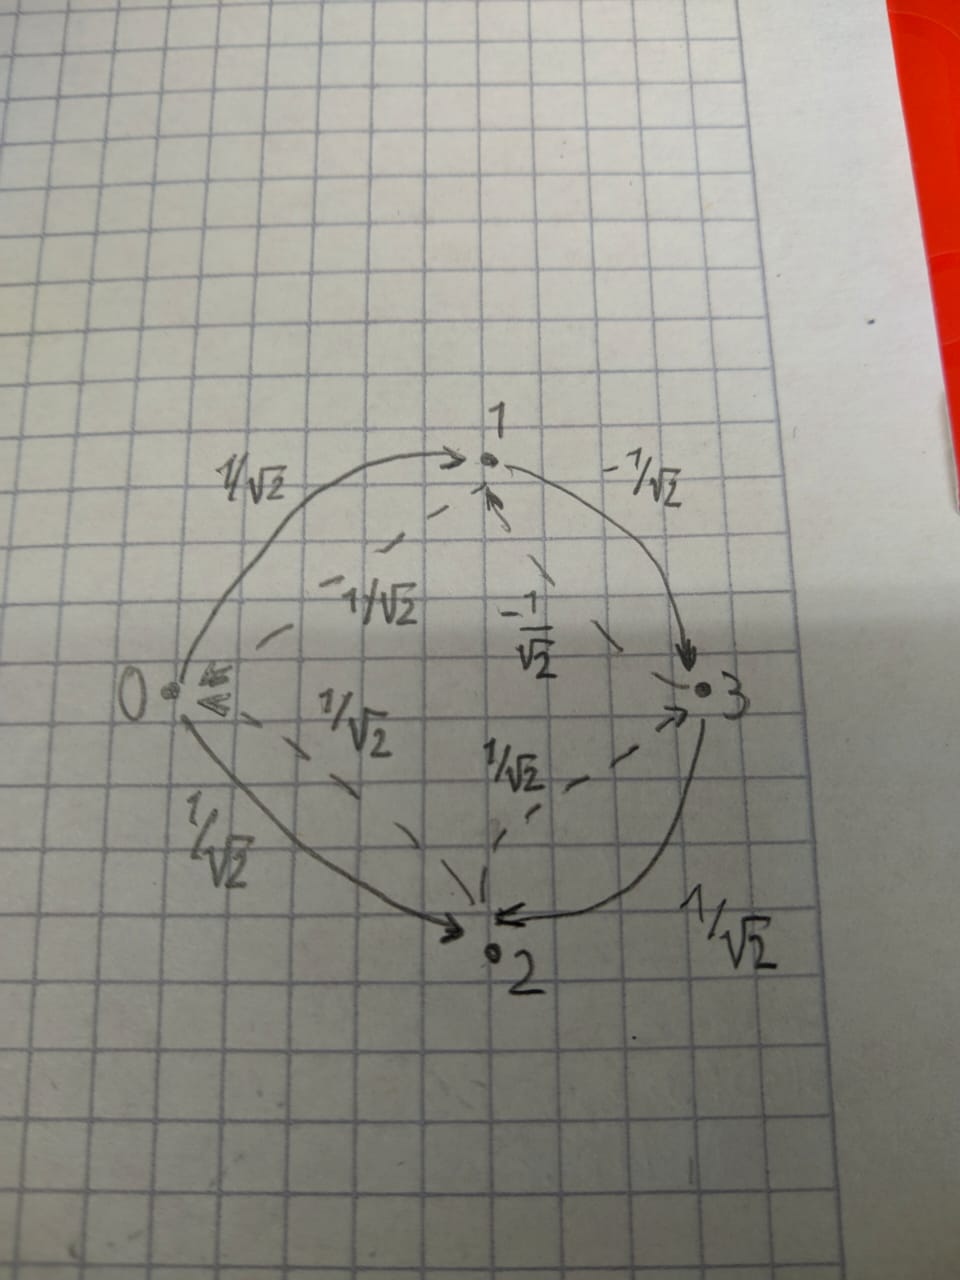 1
1/√2
-1/√2
-1/√2
-1/√2
0
3
1/√2
1/√2
1/√2
1/√2
2